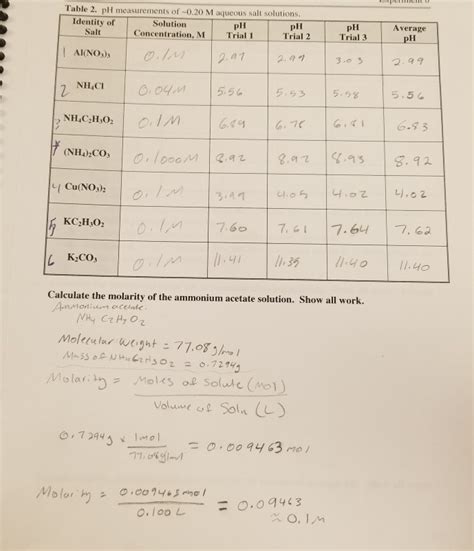 Experiment 6
Table 2. pH measurements of ~0.20 M aqueous salt solutions.
Identity of Salt Solution Concentration, M pH Trial 1 pH Trial 2 pH Trial 3 Average pH
1 Al(NO₃)₃ 0.1M 2.97 2.99 3.03 2.99
2 NH₄Cl 0.04M 5.56 5.53 5.58 5.56
3 NH₄C₂H₃O₂ 0.1M 6.89 6.78 6.81 6.83
7 (NH₄)₂CO₃ 0.1000M 8.92 8.92 8.93 8.92
4 Cu(NO₃)₂ 0.1M 3.99 4.05 4.02 4.02
5 KC₂H₃O₂ 0.1M 7.60 7.61 7.64 7.62
6 K₂CO₃ 0.1M 11.41 11.39 11.40 11.40
Calculate the molarity of the ammonium acetate solution. Show all work.
Ammonium acetate.
NH₄ C₂H₃O₂
Molecular weight = 77.08 g/mol
Mass of NH₄C₂H₃O₂ = 0.7294g
Molarity = Moles of solute (mol)
Volume of Soln (L)
0.7294g x 1mol = 0.009463 mol
77.08g/mol
Molarity = 0.009463mol = 0.09463
0.100 L ≈ 0.1M